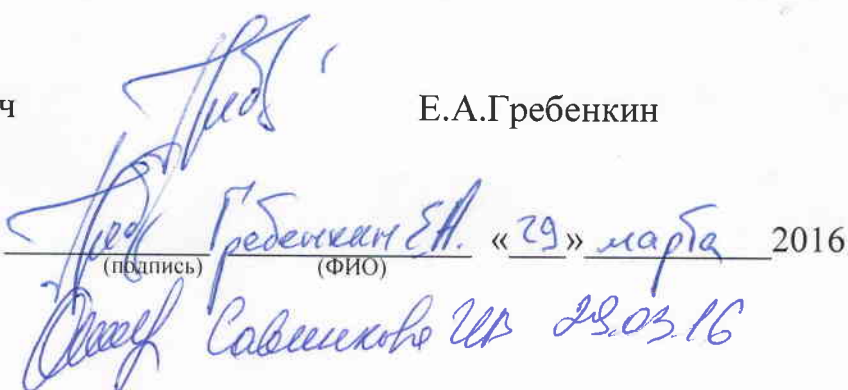 ч Е.А.Гребенкин
Гребенкин Е.А. «29» марта 2016
(подпись) (ФИО)
Савинкова ИВ 29.03.16